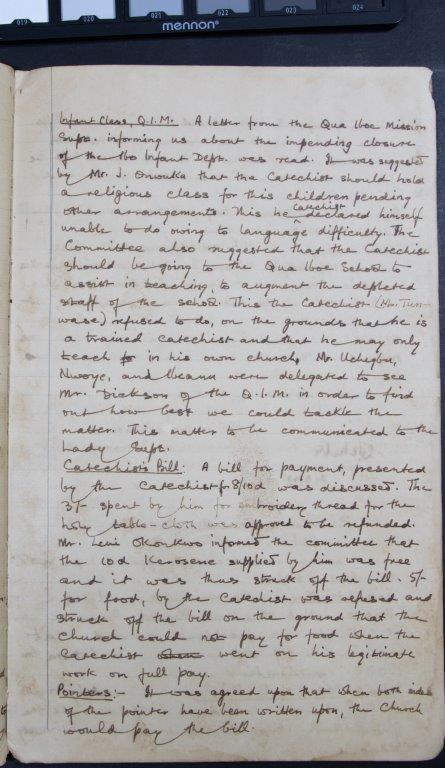 019 020 021 022 023 024
mennon
Infant Class, Q.I.M. A letter from the Qua Iboe Mission
Supt. informing us about the impending closure
of the Ibo Infant Dept. was read. It was suggested
by Mr. J. Onwuka that the Catechist should hold
a religious class for this children pending
other arrangements. This he catechist declared himself
unable to do owing to language difficulty. The
Committee also suggested that the Catechist
should be going to the Qua Iboe School to
assist in teaching, to augment the depleted
staff of the school. This the Catechist (Mr. Tun-
wase) refused to do, on the grounds that he is
a trained catechist and that he may only
teach in his own church. Mr. Uchegbu,
Nwoye, and Ibeanu were delegated to see
Mr. Dickson of the Q.I.M. in order to find
out how best we could tackle the
matter. This matter to be communicated to the
Lady Supt.
Catechist's Bill: A bill for payment, presented
by the Catechist for 8/10d was discussed. The
3/- spent by him for embroidery thread for the
holy table-cloth was approved to be refunded.
Mr. Levi Okonkwo informed the committee that
the 10d Kerosene supplied by him was free
and it was thus struck off the bill. 5/-
for food, by the Catechist was refused and
struck off the bill on the ground that the
Church could not pay for food when the
Catechist went on his legitimate
work on full pay.
Pointers:- It was agreed upon that when both sides
of the pointer have been written upon, the Church
would pay the bill.